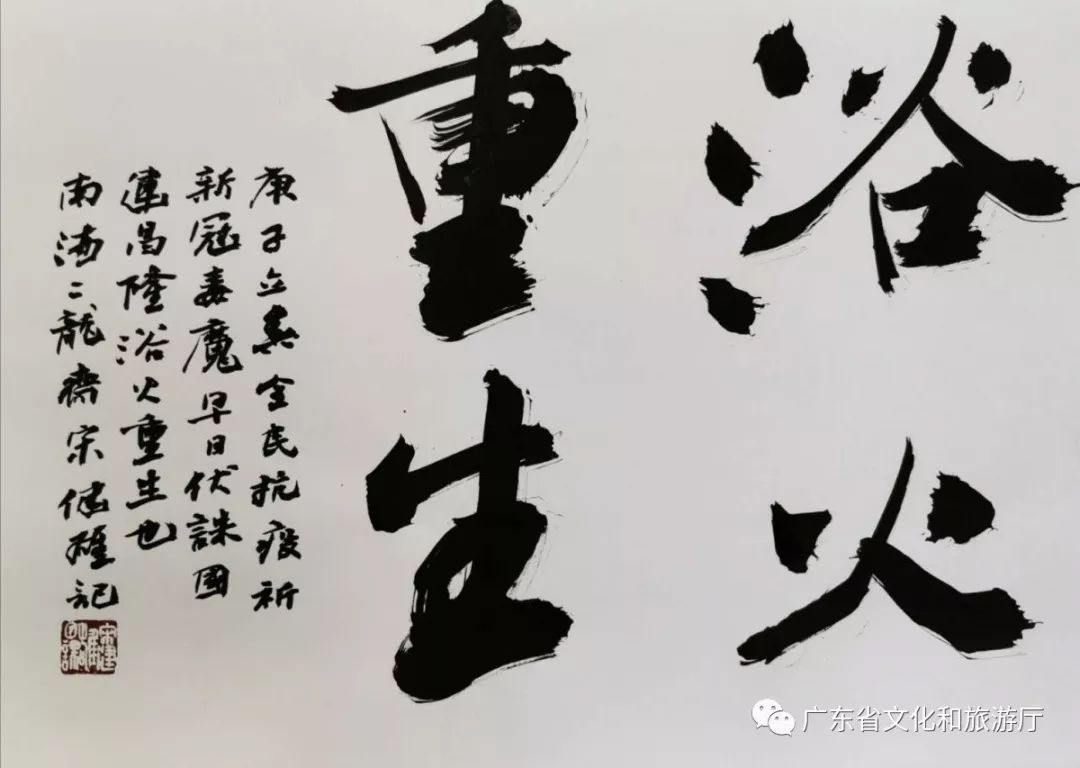 浴火
重生
庚子立春全民抗疫祈
新冠毒魔早日伏誅國
運昌隆浴火重生也
南海二龍齋宋健雄記
广东省文化和旅游厅